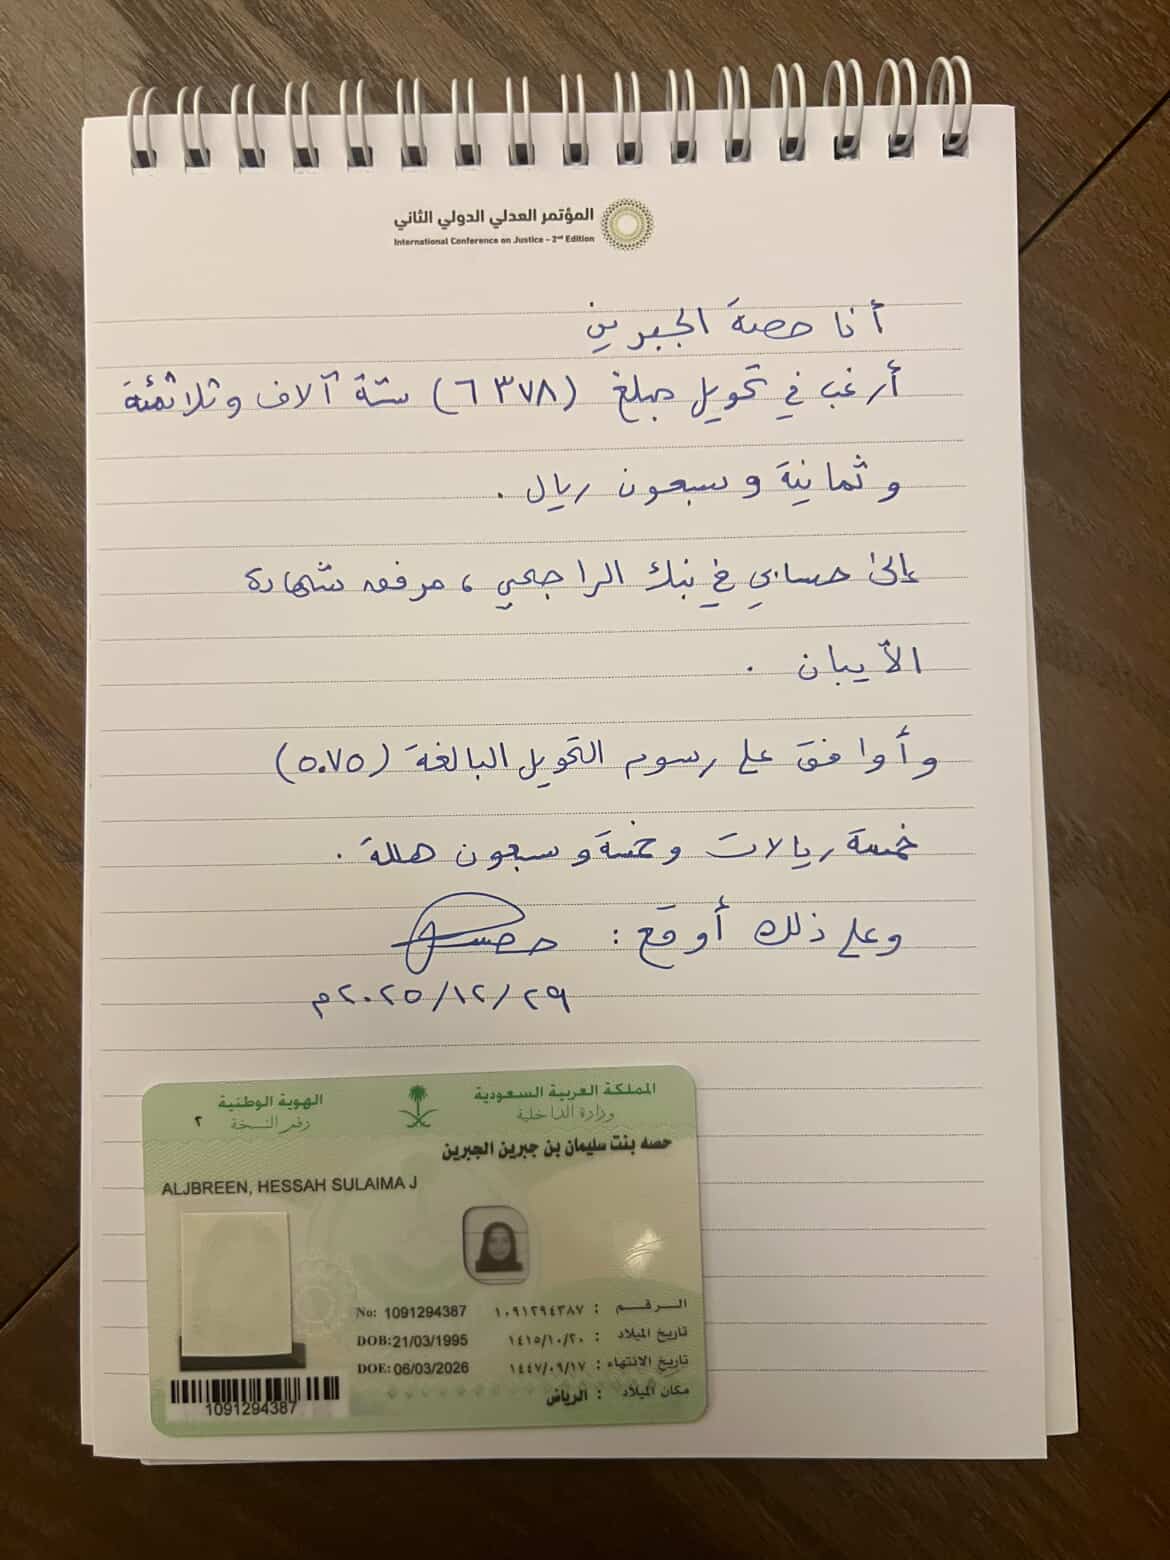 المؤتمر العدلي الدولي الثاني
International Conference on Justice - 2nd Edition
أنا حصة الجبرين
أرغب في تحويل مبلغ (٦٣٧٨) ستة آلاف وثلاثمئة
وثمانية وسبعون ريال .
إلى حسابي في بنك الراجحي ، مرفقه شهادة
الآيبان .
وأوافق على رسوم التحويل البالغة (٥.٧٥)
خمسة ريالات وخمسة وسبعون هللة .
وعلى ذلك أوقع : حصة
٢٠٢٥/١٢/٢٩م
المملكة العربية السعودية
وزارة الداخلية
الهوية الوطنية
رقم النسخة ٢
حصه بنت سليمان بن جبرين الجبرين
ALJBREEN, HESSAH SULAIMA J
الرقم : ١٠٩١٢٩٤٣٨٧ No: 1091294387
تاريخ الميلاد : ١٤١٥/١٠/٢٠ DOB: 21/03/1995
تاريخ الانتهاء : ١٤٤٧/٠٩/١٧ DOE: 06/03/2026
مكان الميلاد : الرياض
1091294387